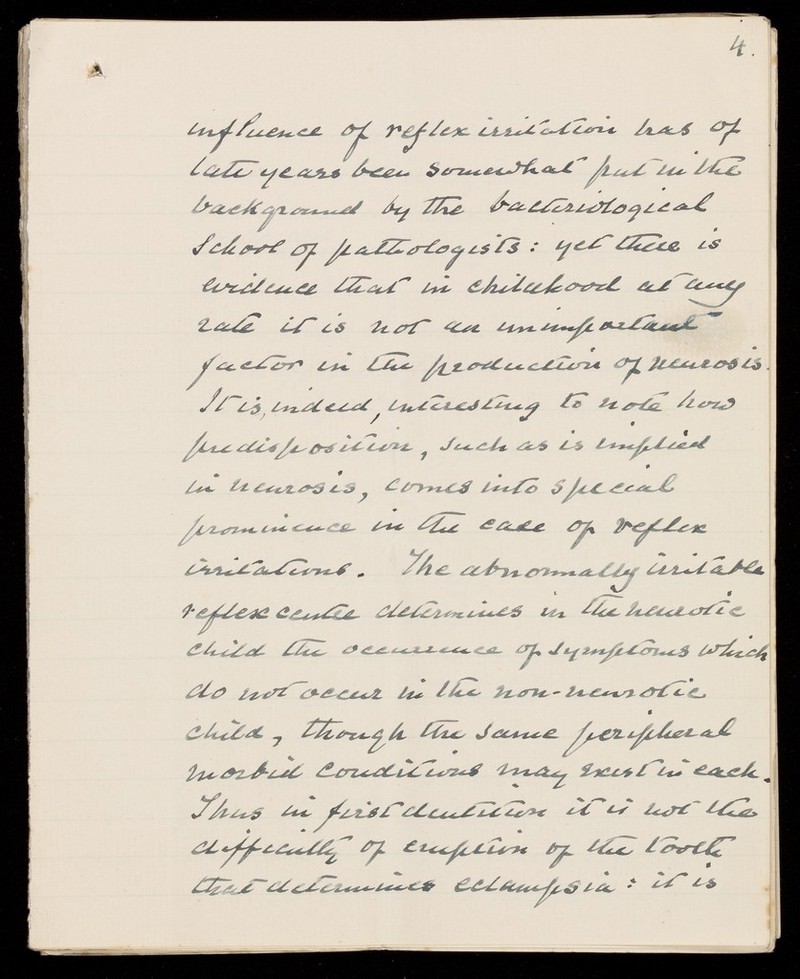 4.
influence of reflex irritation has of
late years been somewhat put in the
background by the bacteriological
School of pathologists: yet there is
evidence that in childhood at any
rate it is not an unimportant
factor in the production of neurosis.
It is, indeed, interesting to note how
predisposition, such as is implied
in neurosis, comes into special
prominence in the case of reflex
irritations. The abnormally irritable
reflex centre determines in the neurotic
child the occurrence of symptoms which
do not occur in the non-neurotic
child, though the same peripheral
morbid conditions may exist in each.
Thus in first dentition it is not the
difficulty of eruption of the tooth
that determines eclampsia: it is